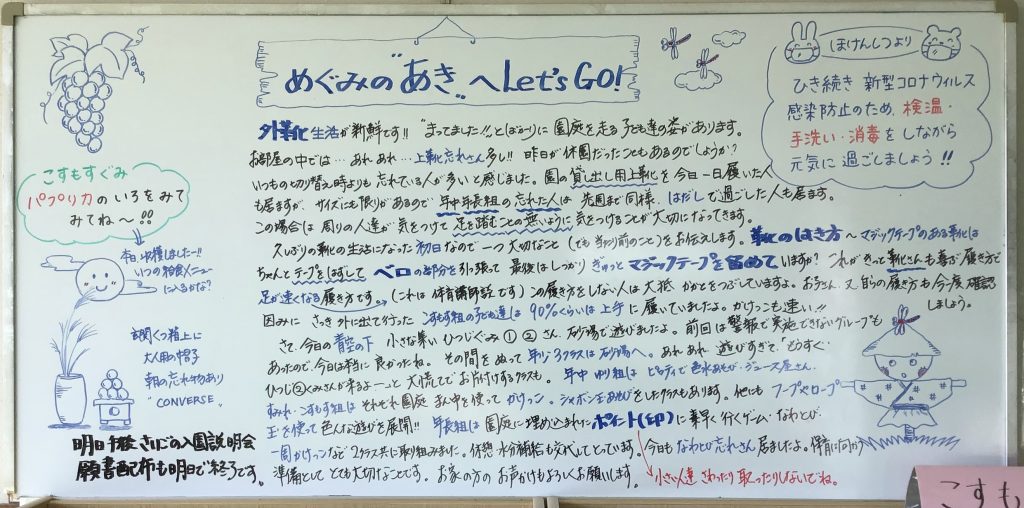 めぐみの"あき"へLet's GO!
外靴化生活が新鮮です!! "まってました!!"とばかりに園庭を走る子ども達の姿があります。
お部屋の中では…あれ あれ…上靴忘れさん多し!! 昨日が休園だったこともあるのでしょうか?
いつもの切替え時よりも忘れている人が多いと感じました。園の貸し出し用上靴を今日一日履いた人
も居ますが、サイズにも限りがあるので年中年長組の忘れた人は先週まで同様、はだしで過ごした人も居ます。
この場合は周りの人達が気をつけて足を踏むことの無いように気をつけることが大切になってきます。
久しぶりの靴の生活になった初日なので一つ大切なこと(でも当たり前のこと)をお伝えします。靴のはき方〜マジックテープのある靴は
ちゃんとテープをはずして ベロの部分を引っ張って最後はしっかりぎゅっとマジックテープを留めていますか? これがきっと靴さんも喜ぶ履き方で
足が速くなる履き方です。(これは体育講師談です)この履き方をしない人は大抵かかとをつぶしていますよ。お子さん、又自らの履き方も今一度確認
しましょう。
因みに さっき外に出て行った こすもす組の子ども達は90%くらいは上手に履いていましたよ。かけっこも速い!!
さて、今日の青空の下 小さな集い ひつじぐみ①②さん、砂場で遊びましたよ。前回は警報で実施できないグループも
あったので今日は本当に良かったね。その間をぬって年少3クラスは砂場へ。あれあれ遊びすぎて「もうすぐ
ひつじ②くみさんが来るよーっと大慌てでお片付けするクラスも。年中ゆり組はピロティで色水あそび・ジュース屋さん、
すみれ・こすもす組はそれぞれ園庭まん中を使ってかけっこ。シャボン玉あそびをしたクラスもあります。他にもフープやロープ
玉を使って色んな遊びを展開!! 年長組は園庭に埋め込まれたポイント(印)に素早く行くゲーム・なわとび・
一周かけっこなど2クラス共に取り組みました。休憩水分補給も交代してとっています。今日もなわとび忘れさん居ましたよ。保育に向かう
準備としてとても大切なことです。お家の方のお声かけもよろしくお願いします。
小さい人達さわったり取ったりしないでね。
ほけんしつより
ひき続き 新型コロナウィルス
感染防止のため、検温・
手洗い・消毒をしながら
元気に過ごしましょう!!
こすもすぐみ
パプリカのいろをみて
みてね〜!!
今日収穫しました…!!
いつの給食メニュー
に入るかな?
玄関くつ箱上に
大人用の帽子
朝の忘れ物あり
"CONVERSE"
明日午後さいごの入園説明会
願書配布も明日で終了です。
こすも